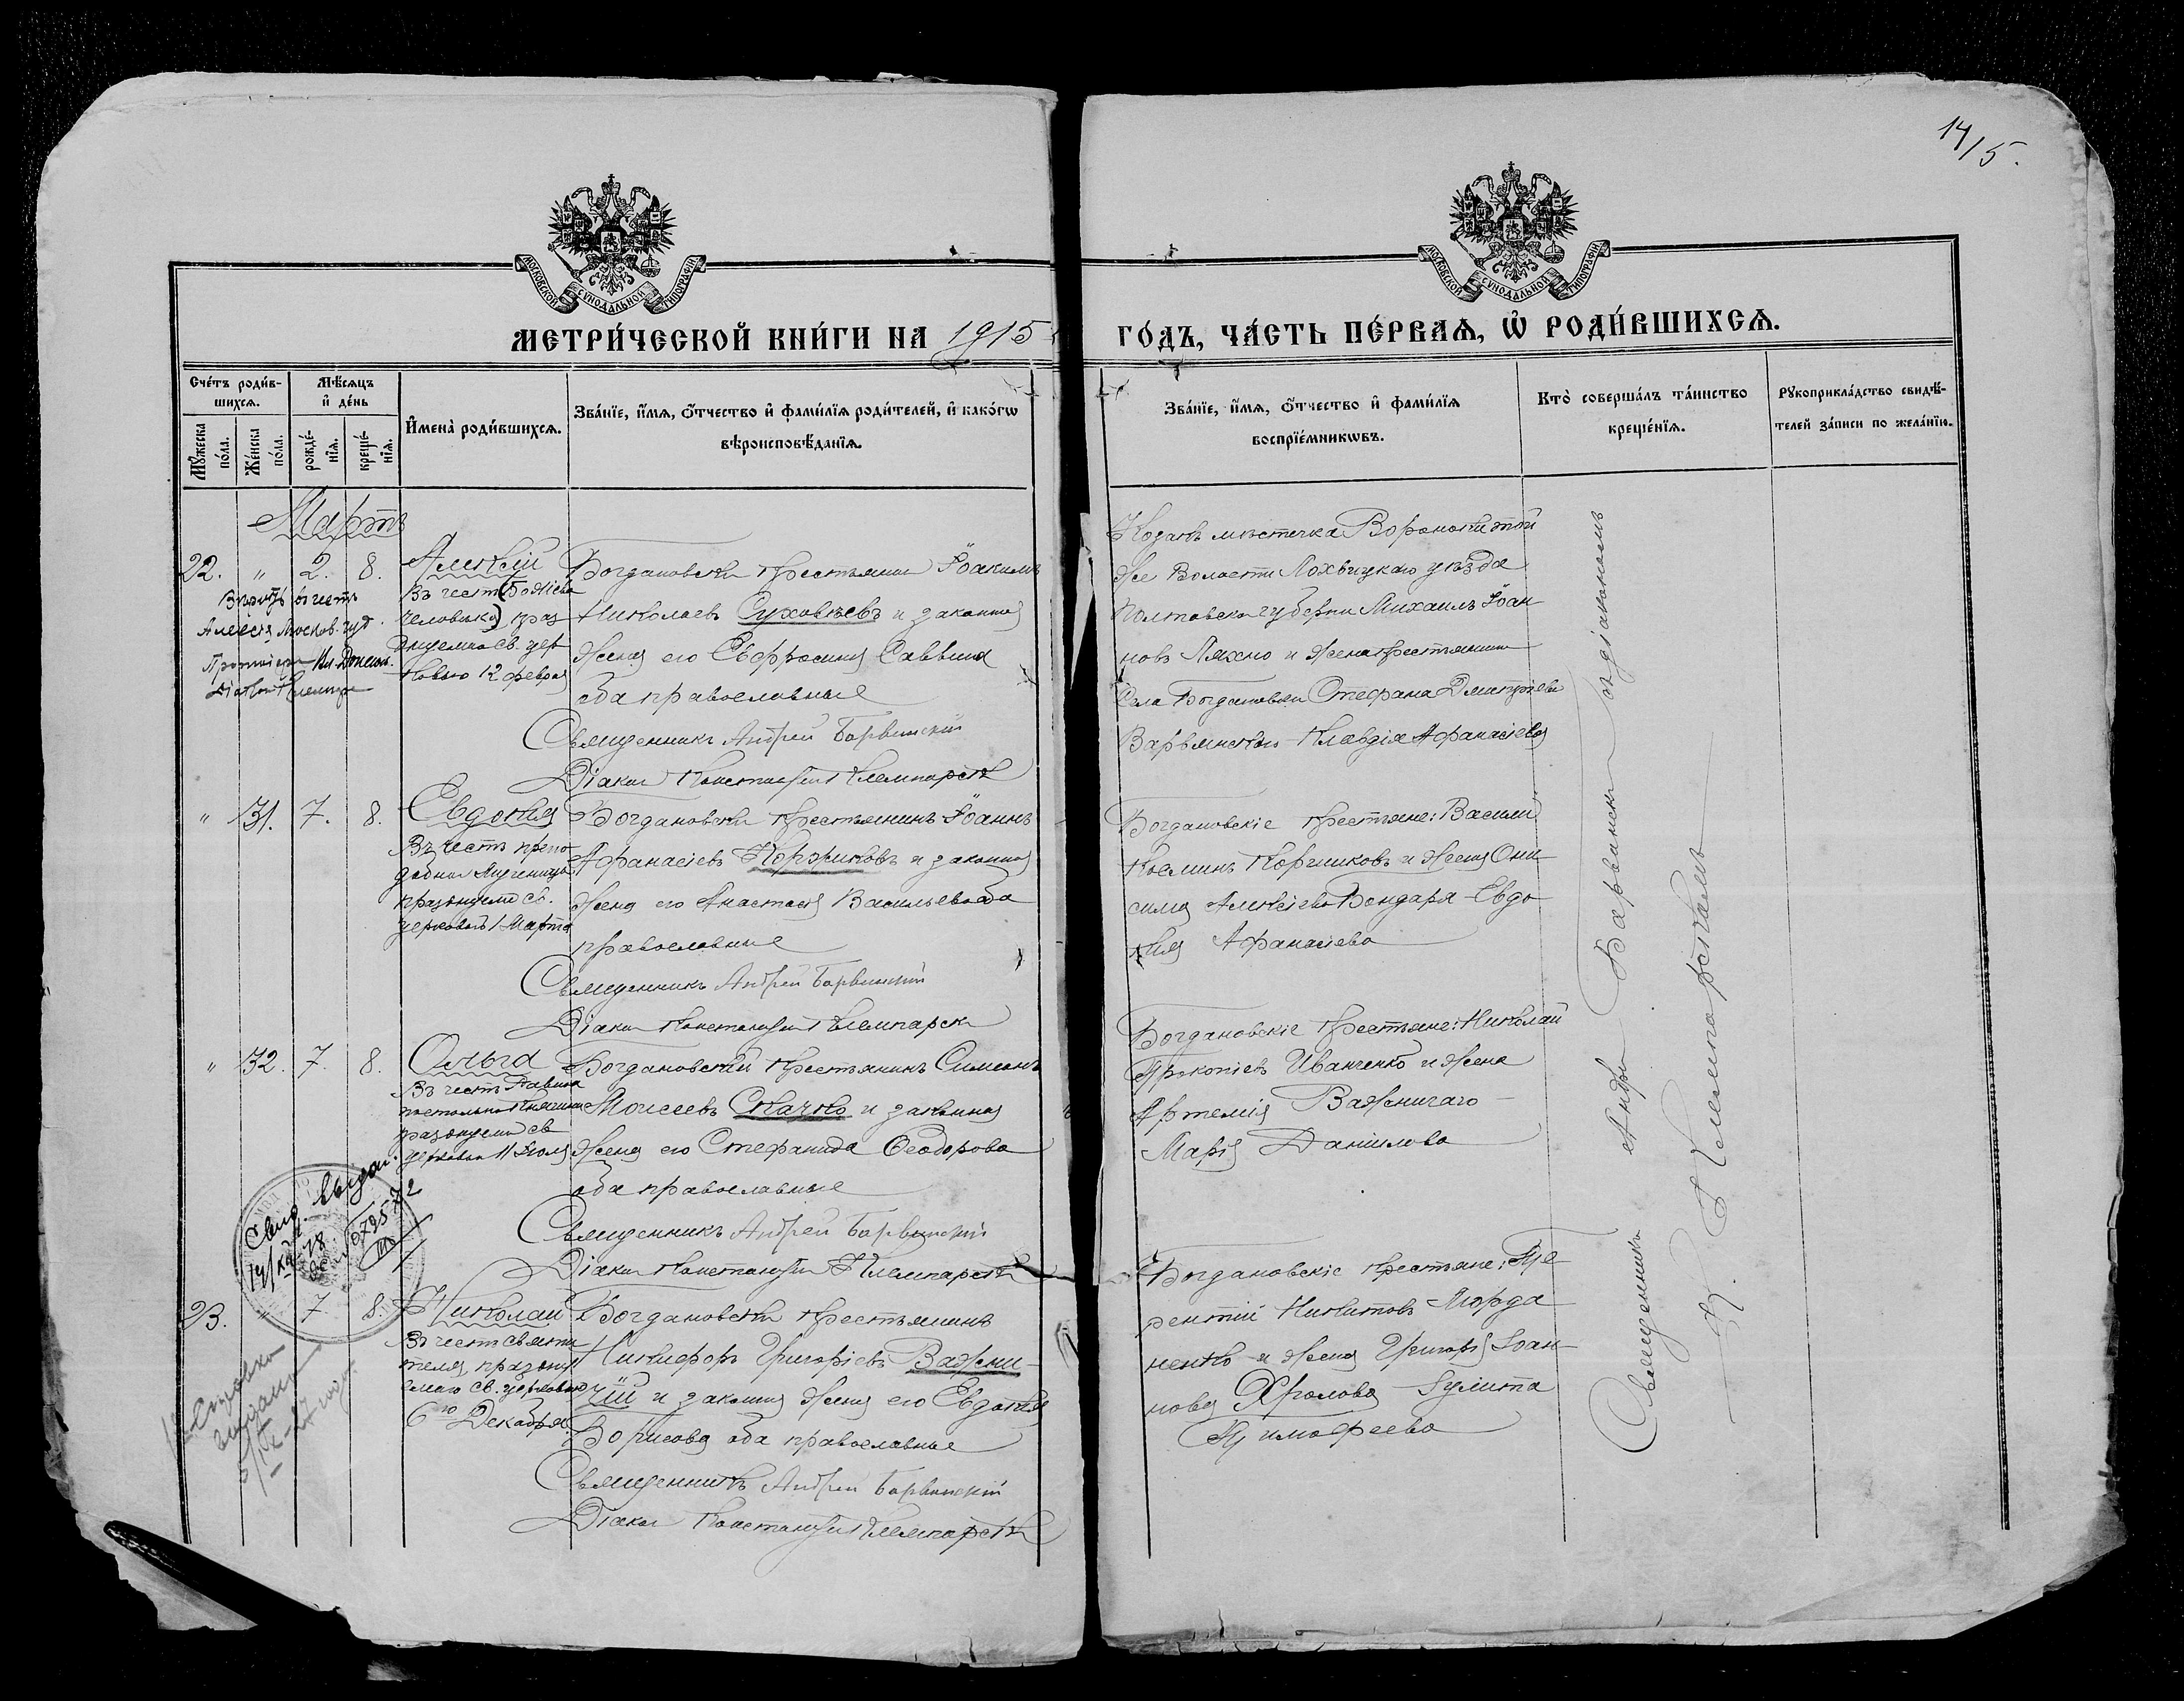 14/15.
МОСКОВСКОЙ СѴНОДАЛЬНОЙ ТИПОГРАФІИ
МОСКОВСКОЙ СѴНОДАЛЬНОЙ ТИПОГРАФІИ
МЕТРИ́ЧЕСКОЙ КНИ́ГИ НА 1915
ГО́ДЪ, ЧА́СТЬ ПЕ́РВАѦ, Ѡ҆ РОДИ́ВШИХСѦ.
Сче́тъ роди́в-
шихсѧ.
Мѣ́сѧцъ
и҆ де́нь
Мꙋ́жеска
по́ла.
Же́нска
по́ла.
рожде́-
нїѧ.
креще́-
нїѧ.
И҆мена̀ роди́вшихсѧ.
Зва́нїе, и҆́мѧ, ѻ҆́тчество и҆ фами́лїѧ роди́телей, и҆ како́гѡ
вѣроисповѣ́данїѧ.
Зва́нїе, и҆́мѧ, ѻ҆́тчество и҆ фами́лїѧ
воспрїе́мникѡвъ.
Кто̀ соверша́лъ та́инство
креще́нїѧ.
Рꙋкоприкла́дство свидѣ́-
телей за́писи по жела́нїю.
Мартъ
22. " 2. 8.
Алексій
Въ честь (Божія
человѣка) праз
св. цер
ковью 12 февраля
въ честь
Алексія Москов. чуд.
Богдановскій крестьянинъ Іоакимъ
Николаевъ Суховѣевъ и законная
жена его Евфросинія Саввина
оба православные
Священникъ Андрей Барвинскій
Діаконъ Константинъ Клемпарскій
Козакъ мѣстечка Воронковъ той
же Волости Лохвицкаго уѣзда
Полтавской губерніи Михаилъ Іоан-
новъ Ляхно и жена крестьянина
села Богдановки Стефана Дмитріева
Варвинскаго Клавдія Афанасіева
" 31. 7. 8.
Евдокія
Въ честь препо
добной Мученицы
празднуемой св.
церковью 1 Марта
Богдановскій крестьянинъ Іоаннъ
Афанасіевъ Коржиковъ и законная
жена его Анастасія Васильева оба
православные
Священникъ Андрей Барвинскій
Діаконъ Константинъ Клемпарскій
Богдановскіе крестьяне: Василій
Косминъ Коржиковъ и жена Они-
сима Алексіева Бондаря Евдо-
кія Афанасіева
" 32. 7. 8.
Ольга
Въ честь Равно
апостольной Княгини
празднуемой св
церковью 11 Іюля
Богдановскій крестьянинъ Симеонъ
Моисеевъ Скачко и законная
жена его Стефанида Ѳеодорова
оба православные
Священникъ Андрей Барвинскій
Діаконъ Константинъ Клемпарскій
Богдановскіе крестьяне: Николай
Прокопіевъ Иванченко и жена
Артемія Важничаго
Марія Даніилова
Свид. выдан.
23. " 7. 8.
Николай
Въ честь святи
теля, праздну
емаго св. церковью
6го Декабря.
Богдановскій крестьянинъ
Никифоръ Григоріевъ Важни-
чій и законная жена его Евдокія
Борисова оба православные
Священникъ Андрей Барвинскій
Діаконъ Константинъ Клемпарскій
Богдановскіе крестьяне: Те-
рентій Никитовъ Морда
ненко и жена Григорія Іоан-
нова Хролова Іулита
Тимофеева
Справка
выдана
Священникъ Андрей Барвинскій съ діакономъ
К. Клемпарскимъ